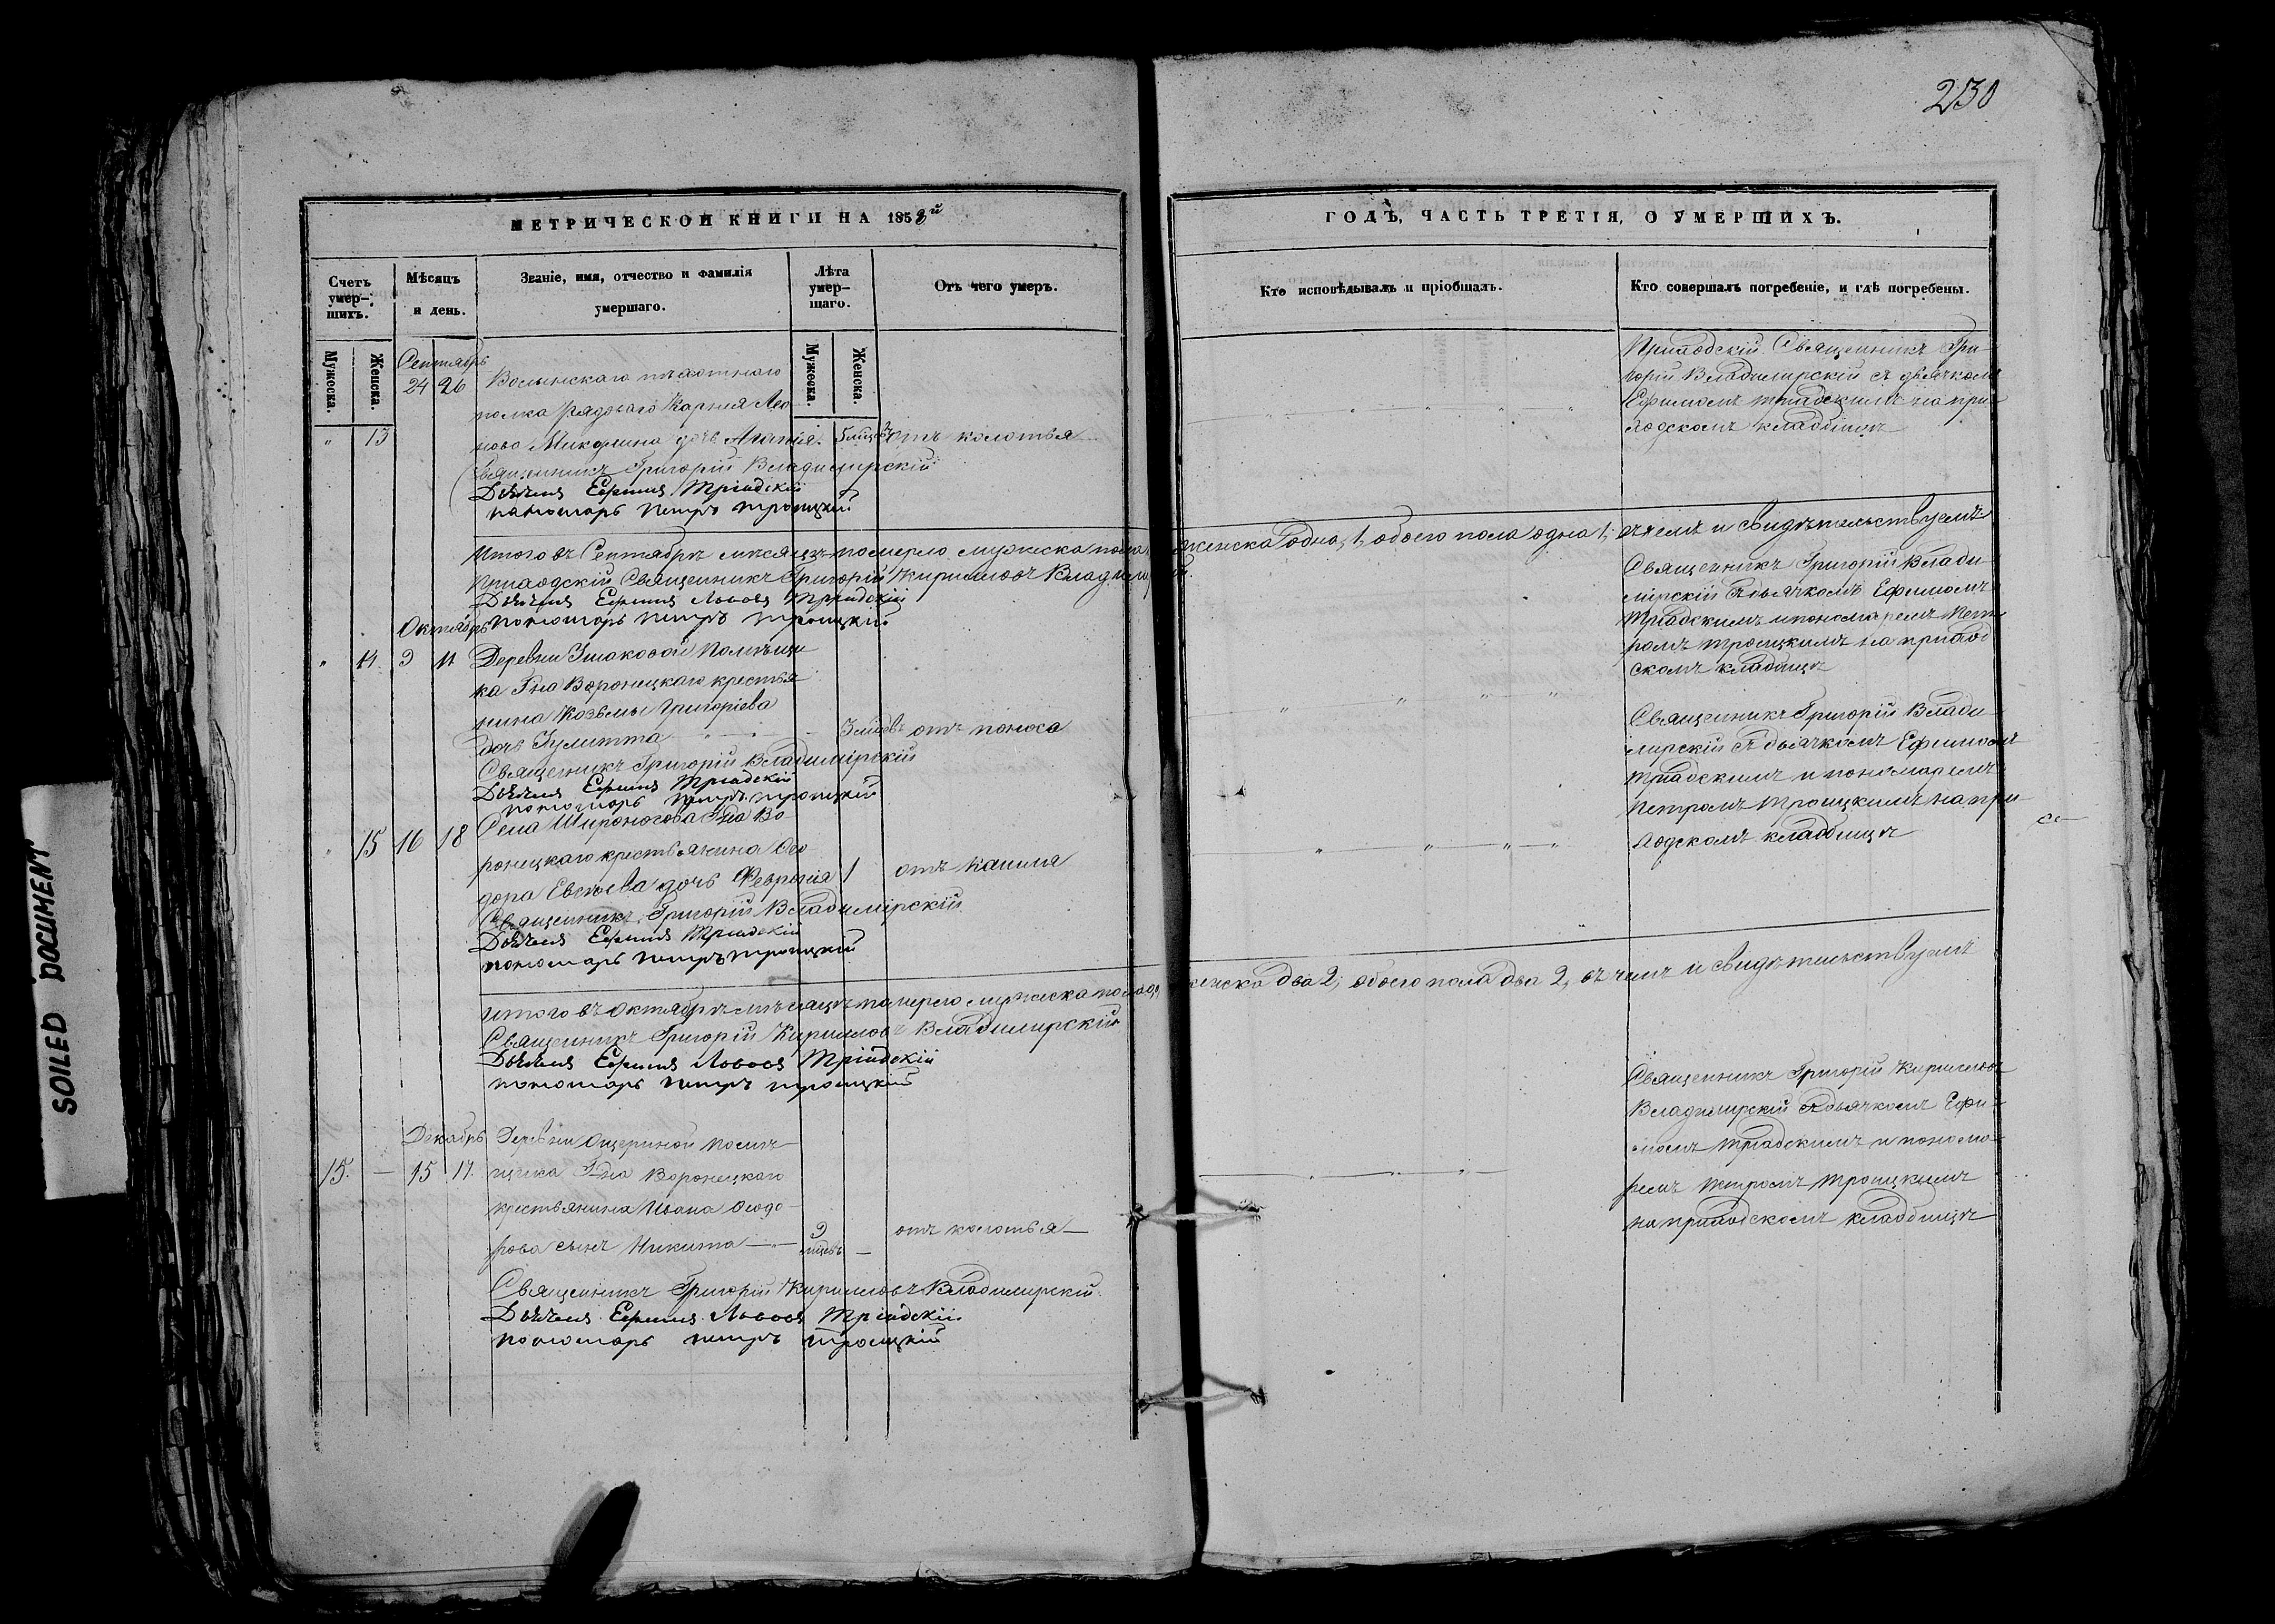 230
МЕТРИЧЕСКОЙ КНИГИ НА 1858й
ГОДЪ, ЧАСТЬ ТРЕТІЯ, О УМЕРШИХЪ.
Счетъ умер-шихъ.
Мѣсяцъ и день.
Званіе, имя, отчество и фамилія умершаго.
Лѣта умер-шаго.
Отъ чего умеръ.
Кто исповѣдывалъ и пріобщалъ.
Кто совершалъ погребеніе, и гдѣ погребены.
Мужеска.
Женска.
Мужеска.
Женска.
Сентябрь
24 26 Волынскаго пѣхотнаго
полка рядоваго Карпа Лео
" 13 нова Микулина дочь 5 отъ колотья
Священникъ Григорій Владимірскій
Дьячекъ Ефимъ Тріадскій
пономарь петръ троицкій
Приходскій Священникъ Гри
горій Владимірскій съ дьячкомъ
Ефимомъ тріадскимъ на при
ходскомъ кладбищѣ
Итого въ Сентябрѣ мѣсяцѣ померло мужеска пола женска одна, 1, обоего пола одна 1, въ чемъ и свидѣтельствуемъ
Приходскій Священникъ Григорій Кириловъ
Дьячекъ Ефимъ Львовъ Тріадскій
пономарь петръ троицкій
Октябрь
" 14. 9 11 Деревни помѣщи
ка Гна Воронецкаго крестья
нина Козьмы Григоріева
дочь Іулитта отъ поноса
Священникъ Григорій Владимірскій
Дьячекъ Ефимъ Тріадскій
пономарь петръ троицкій
Священникъ Григорій Влади
мірскій съ дьячкомъ Ефимомъ
тріадскимъ и пономаремъ Пет
ромъ троицкимъ на приход
скомъ кладбищѣ
15 16 18 Села Широносова Гна Во
ронецкаго крестьянина Ѳео
дора дочь Феврынія 1 отъ кашля
Священникъ Григорій Владимірскій
Дьячекъ Ефимъ Тріадскій
пономарь петръ троицкій
Священникъ Григорій Влади
мірскій съ дьячкомъ Ефимомъ
тріадскимъ и пономаремъ
Петромъ троицкимъ на при
ходскомъ кладбищѣ
итого въ октябрѣ мѣсяцѣ померло мужеска пола 0, женска два 2, обоего пола два 2, въ чемъ и свидѣтельствуемъ
Священникъ Григорій Кириловъ Владимірскій
Дьячекъ Ефимъ Львовъ Тріадскій
пономарь петръ троицкій
Декабрь Деревни Ощериной помѣ
15. — 15 17. щика Гдна Воронецкаго
крестьянина Ивана Ѳеодо
рова сынъ Никита 9 — отъ колотья —
Священникъ Григорій Кириловъ Владимірскій
Дьячекъ Ефимъ Львовъ Тріадскій
пономарь петръ троицкій
Священникъ Григорій Кириловъ
Владимірскій съ дьячкомъ Ефи
момъ тріадскимъ и понома
ремъ петромъ троицкимъ
на приходскомъ кладбищѣ
SOILED DOCUMENT